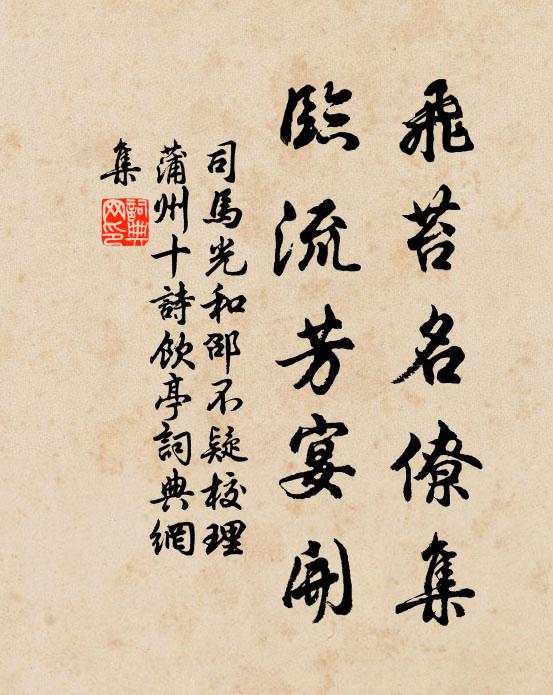 飛苔名僚集
臨流芳宴開
司馬光和邵不疑校理
蒲州十詩飲亭詞典網
集
詞典網印